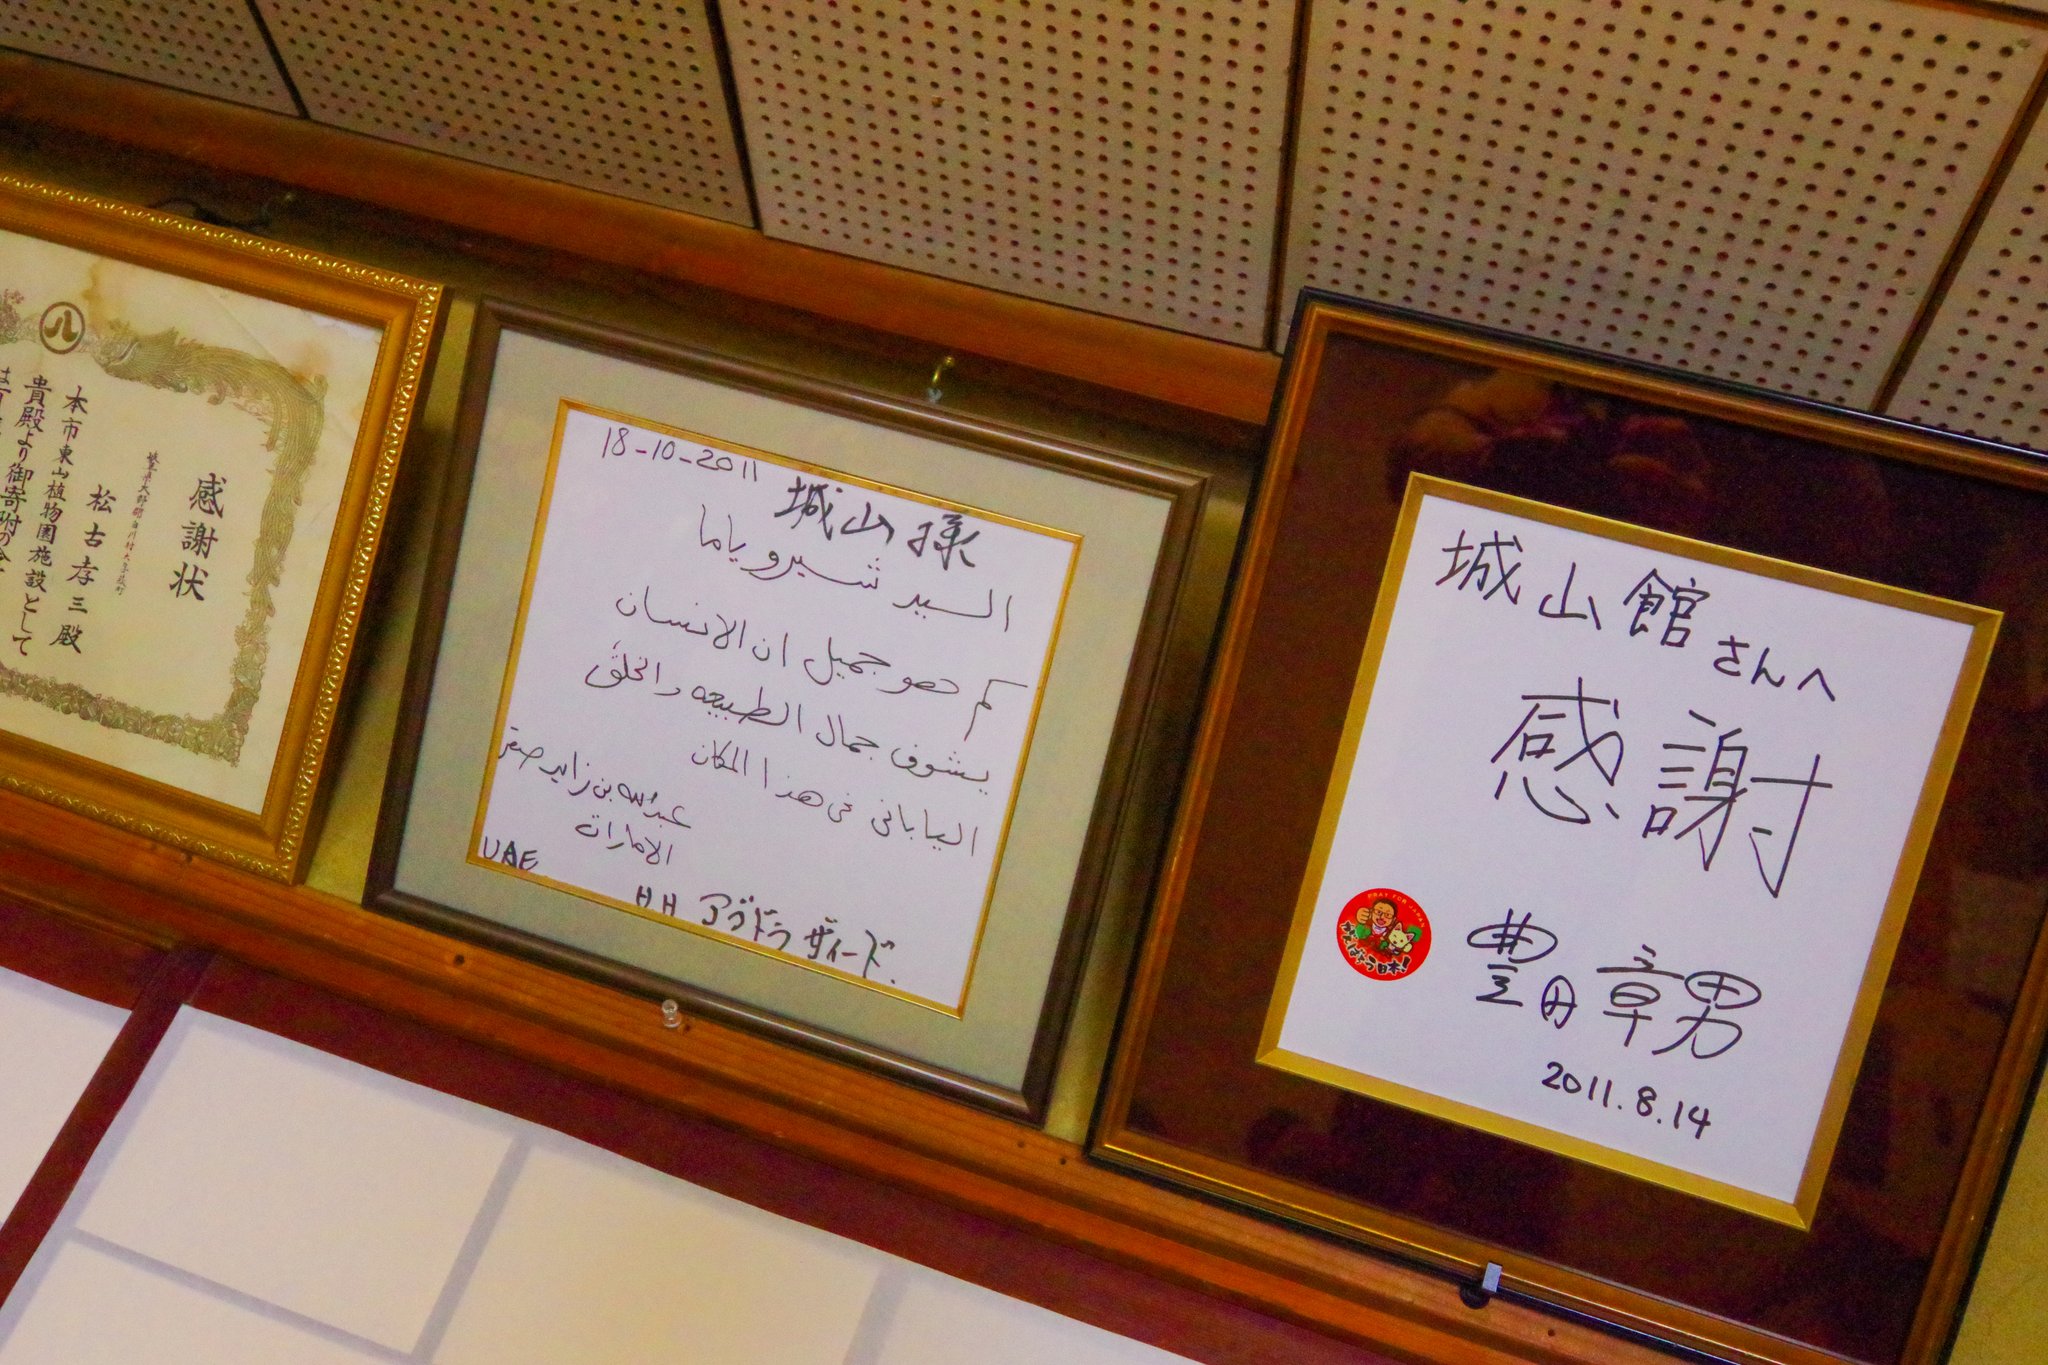 八
感謝状
松古孝三殿
本市東山植物園施設として
貴殿より御寄附の
18-10-2011
城山様
السيد شيرو ياما
كم هو جميل ان الانسان
يشوف جمال الطبيعه والخلق
الياباني في هذا المكان
عبدالله بن زايد
الامارات
UAE
HH アブドラ ザイード.
城山館さんへ
感謝
PRAY FOR JAPAN
がんばろう日本!
豊田章男
2011.8.14